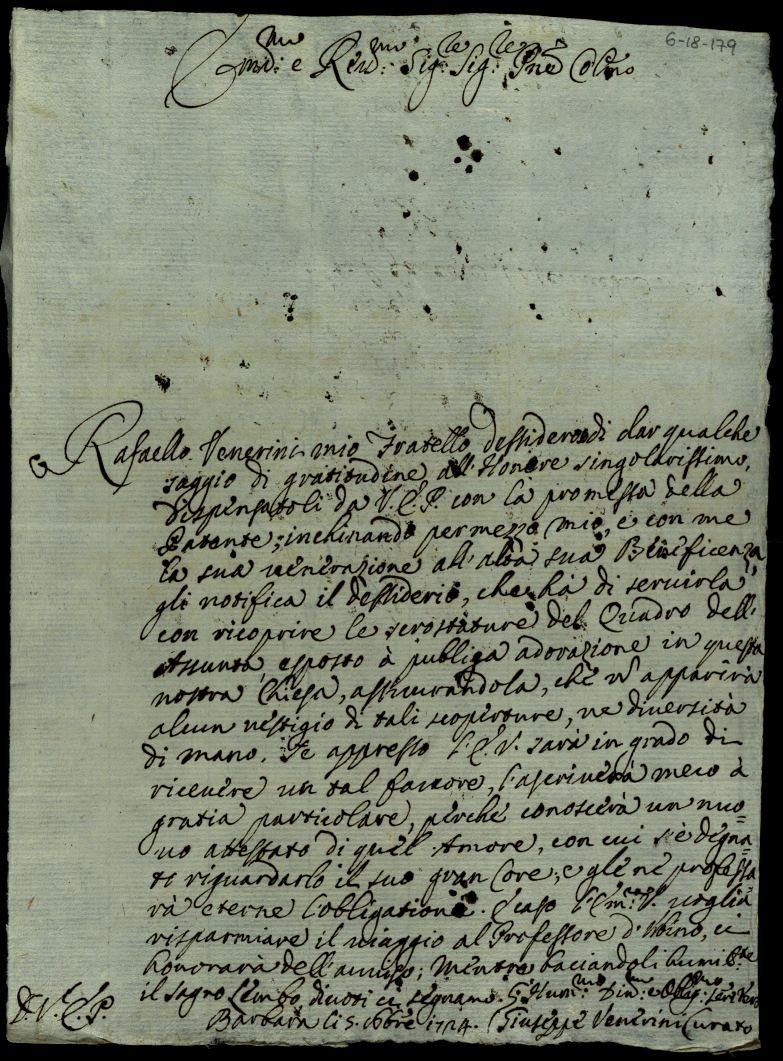 6-18-179
Em.mo e Rev.mo Sig.re Sig.re Pne Colmo
Rafaello Venerini mio Fratello dessiderando di dar qualche
saggio di gratitudine all'Honore singolarissimo,
dispensatoli da V.E.P. con la promessa della
Patente; inchinando per mezzo mio, e con me
la sua venerazione all'alta sua Beneficenza,
gli notifica il dessiderio, che hà di servirla
con ricoprire le scrostature del Quadro dell'
Assunta, esposto à publica adorazione in questa
nostra Chiesa, assicurandola, che nõ apparirà
alcun vestigio di tali scoperture, ne diversità
di mano. Se appresso l'E.V. sarà in grado di
ricevere un tal favore, l'ascriverà meco à
gratia particolare, perche conoscerà un nuo=
vo attestato di quell'Amore, con cui s'è degna=
to riguardarlo il suo gran Core; e gle ne professa
rà eterne l'obligationi. E caso l'Em.za V. voglia
risparmiare il viaggio al Professore d'Urbino, ci
honorarà dell'avviso; mentre baciandoli humil.te
il sagro Lembo, divoti ci segnamo.
D. V. E. P.
Barbara li 5. 8bre 1724. Giuseppe Venerini Curato